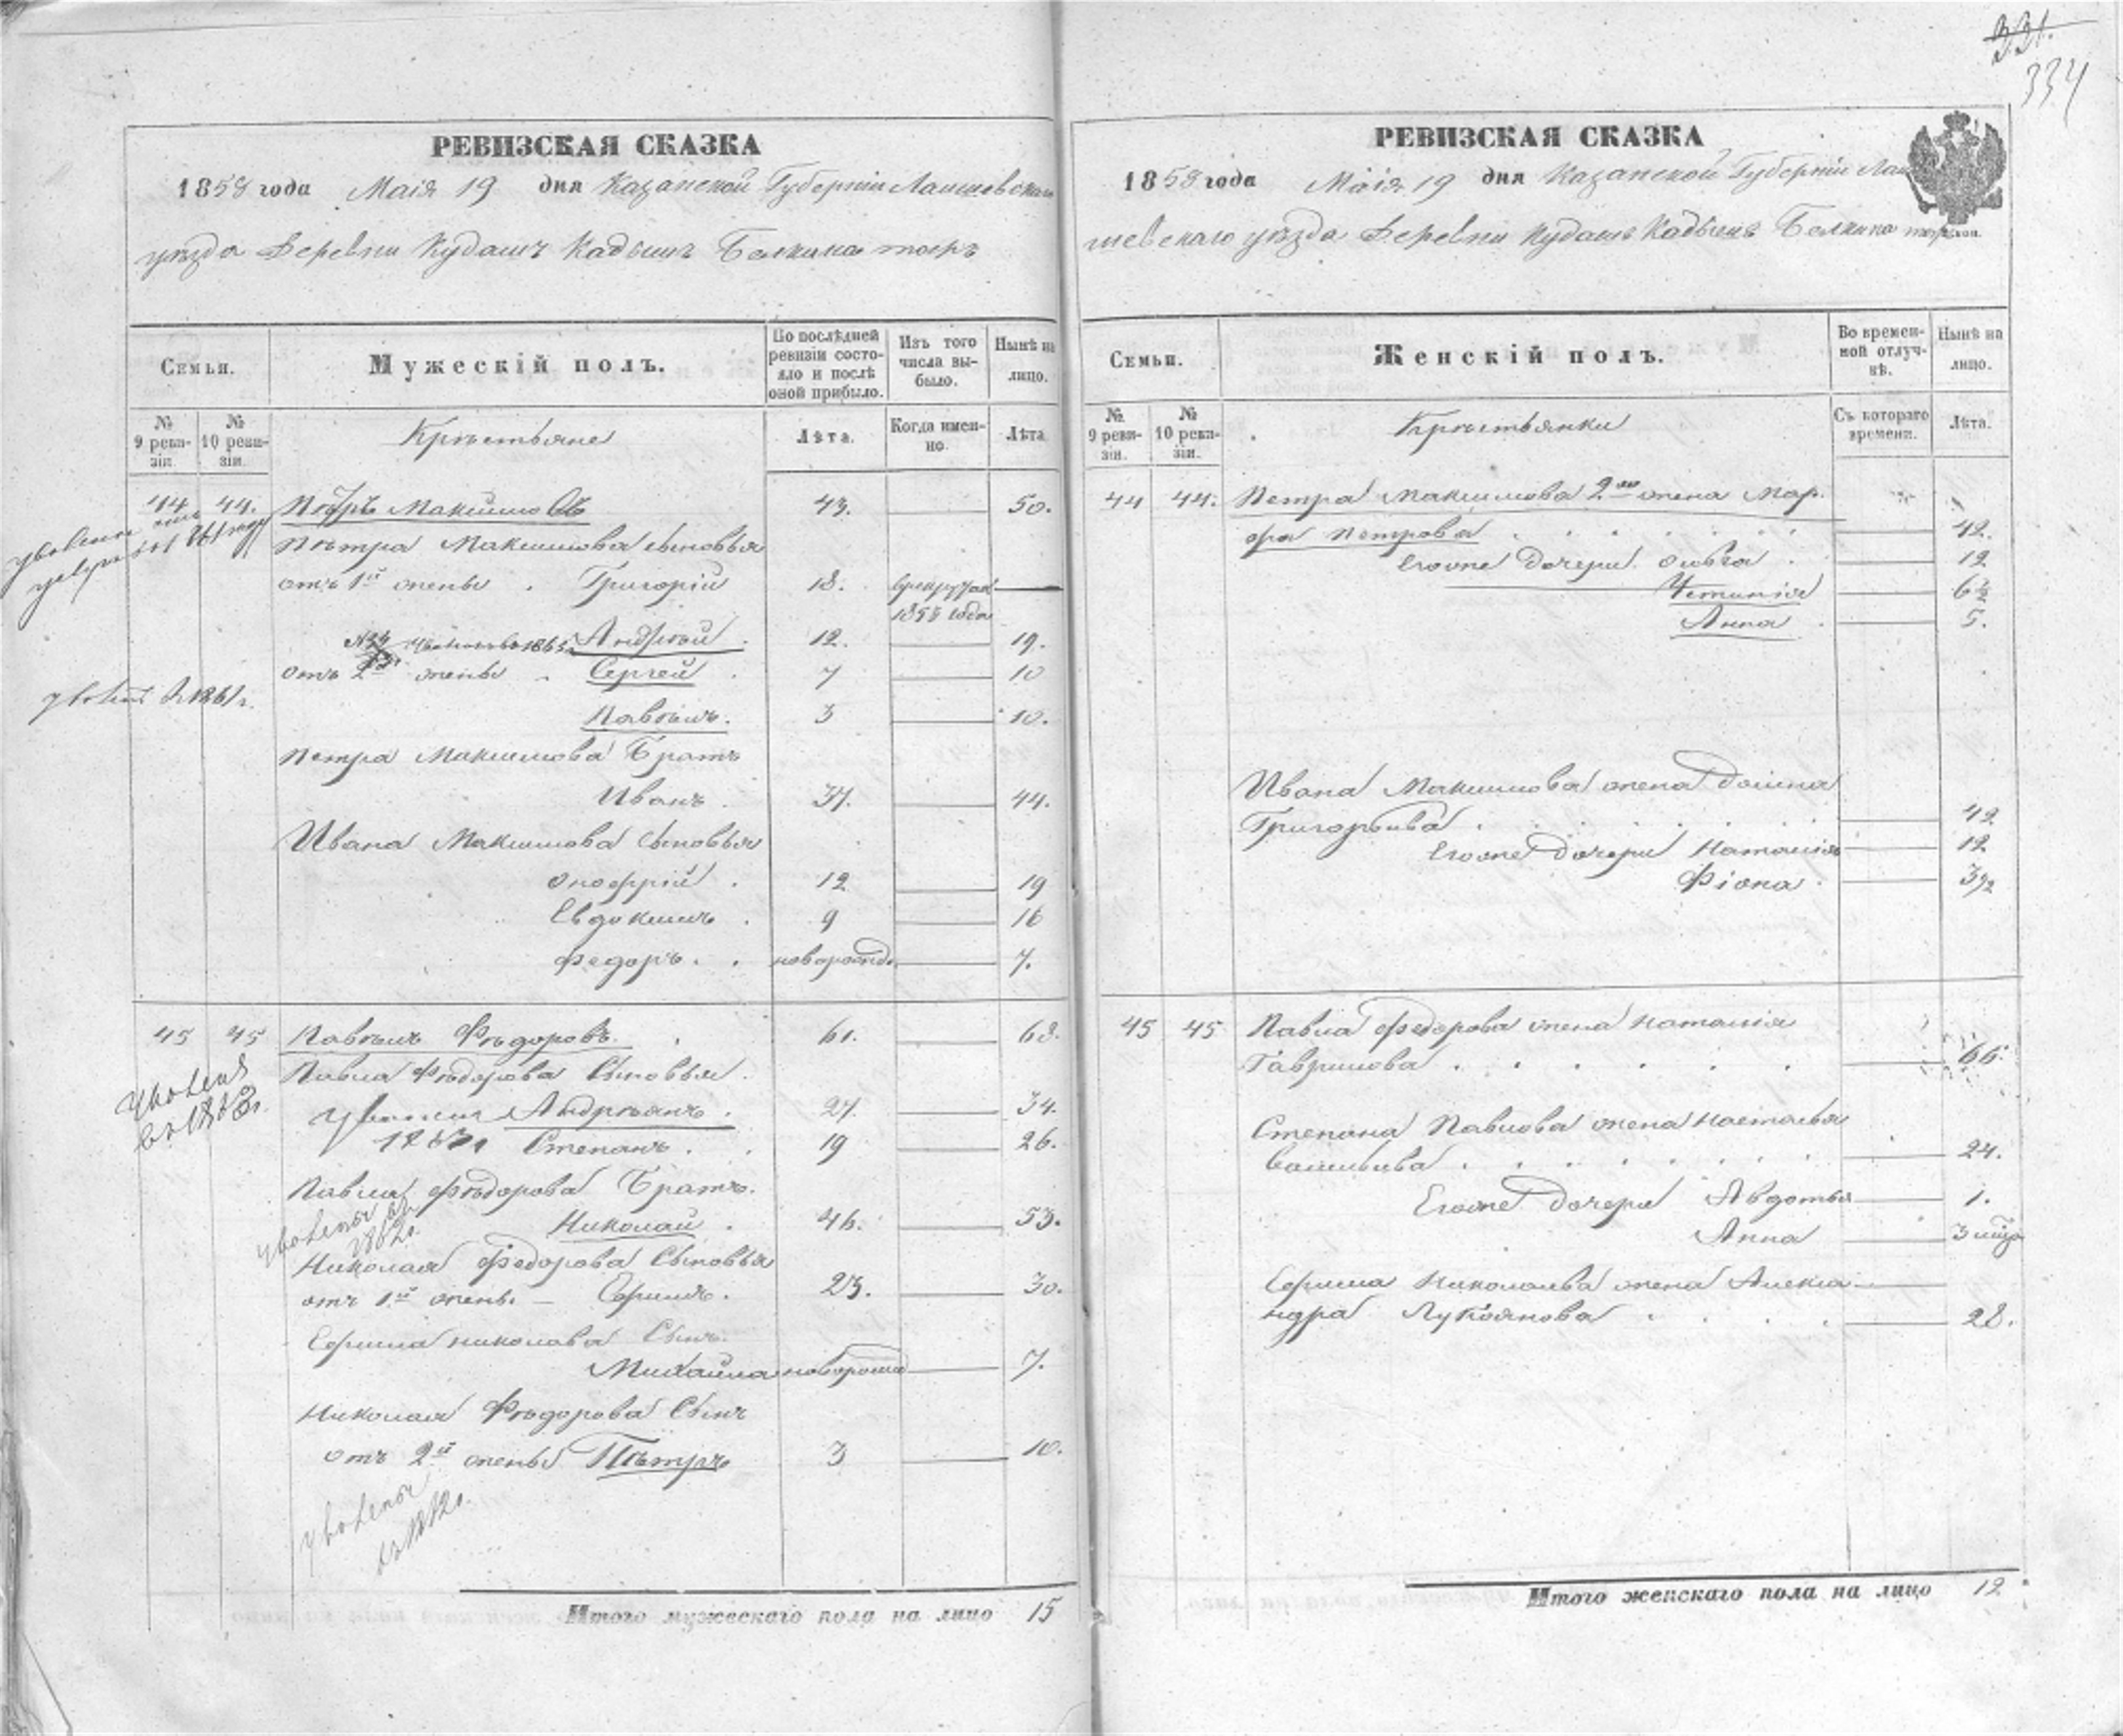 331.
334
РЕВИЗСКАЯ СКАЗКА
1858 года Маія 19 дня Казанской Губерніи Лаишевскаго
уѣзда Деревни Кудашъ Кадышъ Балкина тожъ
Семьи.
Мужескій полъ.
По послѣдней ревизіи состояло и послѣ оной прибыло.
Изъ того числа выбыло.
Нынѣ на лицо.
№ 9 ревизіи.
№ 10 ревизіи.
Крѣстьяне
Лѣта.
Когда именно.
Лѣта
44 44. Пѣтръ Максимовъ 43. 50.
уволены
Пѣтра Максимова сыновья
отъ 1й жены . Григорій 18. врекруты
1854 года
Андрѣй . 12. 19.
отъ 2й жены . Сергей . 7 10
уволенъ 1861г.
Павѣлъ. 3 10.
Петра Максимова Братъ
Иванъ . 37. 44.
Ивана Максимова сыновья
Онофрій . 12 19
Евдокимъ . 9 16
Федоръ . . новорожд. 7.
45 45 Павѣлъ Фѣдоровъ . 61. 68.
уволенъ
в 1863г.
Павла Фѣдорова Сыновья .
Андрѣянъ . 27. 34.
Степанъ . . 19 26.
Павла Фѣдорова Братъ.
уволены въ
1862г.
Николай . 46. 53.
Николая Федорова Сыновья
отъ 1й жены. – Ефимъ . 23. 30.
Ефима Николаева Сынъ.
Михайла новорожд 7.
Николая Фѣдорова Сынъ
отъ 2й жены Пѣтръ 3 10.
уволены
Итого мужескаго пола на лицо 15
РЕВИЗСКАЯ СКАЗКА
1858 года Маія 19 дня Казанской Губерніи Лаи
шевскаго уѣзда Деревни Кудашъ Кадышъ Балкина тожъ
Семьи.
Женскій полъ.
Во временной отлучкѣ.
Нынѣ на лицо.
№ 9 ревизіи.
№ 10 ревизіи.
Крѣстьянки
Съ котораго времени.
Лѣта.
44 44. Петра Максимова 2ая жена Мар
фа Петрова . . . . . . 42.
Егоже Дочери Ольга . 12
6½
Анна . 5.
Ивана Максимова жена Домна
Григорьева . . . . . . 42
Егоже Дочери Наталія 12
Фіона . 3½
45 45 Павла Федорова жена Наталія
Гаврилова . . . . . . 66.
Степана Павлова жена Настасья
Васильева . . . . . . . 24.
Егоже Дочери Авдотья 1.
Анна
Ефима Николаева жена Алекса
ндра Лукоянова . . . . 28.
Итого женскаго пола на лицо 12